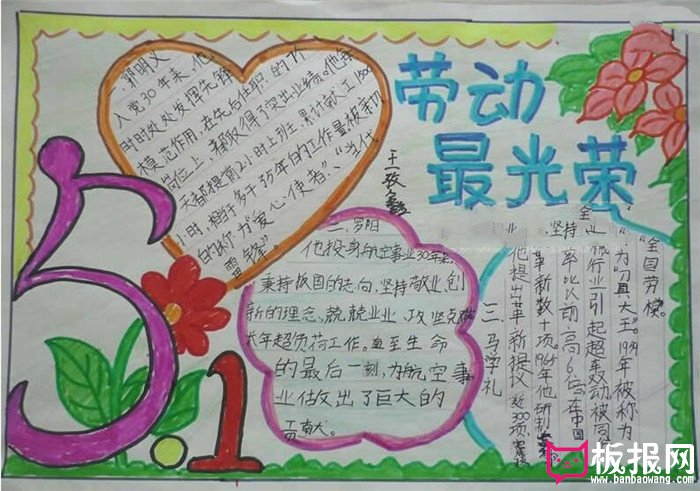 劳动
最光荣
5.1
郭明义
入党30年来,他
时时处处发挥先锋
模范作用,在先后任职的
岗位上,都取得了突出业绩。他
天都提前2小时上班,累计献工1500
小时,相当于多干了5年的工作量,被亲切
的称为"爱心使者"、"当代
雷锋"。
二、罗阳
他投身航空事业30年
秉持报国的志向,坚持敬业、创
新的理念,兢兢业业,攻坚克难
长年超负荷工作。直至生命
的最后一刻,为航空事
业做出了巨大的
贡献。
三、马学礼
他提出革新提议近300项
革新数十项。1964年他研制
业,坚持
率比以前高6倍,在中国
械行业引起轰动,被同
"为"刀具大王"。1959年被称为
"全国劳模"。
板报网
www.banbaowang.com